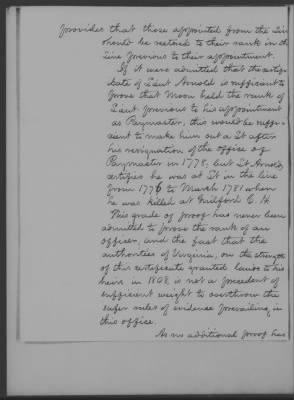 provides that those appointed from the Line
should be restored to their rank in the
Line previous to their appointment.
If it were admitted that the certifi-
cate of Lieut Arnold is sufficient to
prove that Moon held the rank of
Lieut previous to his appointment
as Paymaster, this would be suffi-
cient to make him out a Lt after
his resignation of the office of
Paymaster in 1778, but Lt Arnold
certifies he was a Lt in the line
from 1776 to March 1781 when
he was killed at Guilford C. H.
This grade of proof has never been
admitted to prove the rank of an
officer, and the fact that the
authorities of Virginia, on the strength
of this certificate granted lands to his
heirs in 1808 is not a precedent of
sufficient weight to overthrow the
safer rules of evidence prevailing in
this office.
As no additional proof has